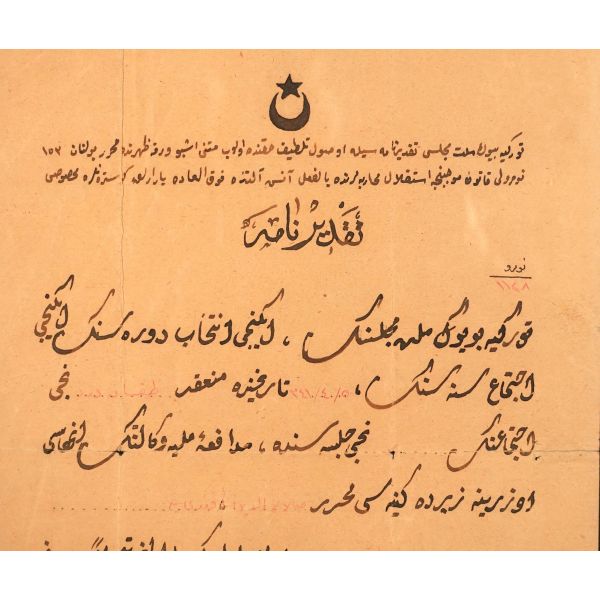 توركيه بيوك ملت مجلسى تقديرنامه سيله اوصول تلطيف حقنده اولوب متنى اشبو ورقه ظهرنده محرر بولنان ١٥٣
نومرولى قانون موجبنجه استقلال محاربه لرنده بالفعل آتش آلتنده فوق العاده يارارلق كوسترنلره مخصوص
تقديرنامه
نومرو
١١٢٨
توركيه بويوك ملت مجلسنك ، ايكنجى انتخاب دوره سنك ايكنجى
اجتماع سنه سنك ، تاريخنده منعقد نجى
اجتماعنك نجى جلسه سنده ، مدافعۀ مليه وكالتنك انهاسى
اوزرينه زيرده كنيه سى محرر